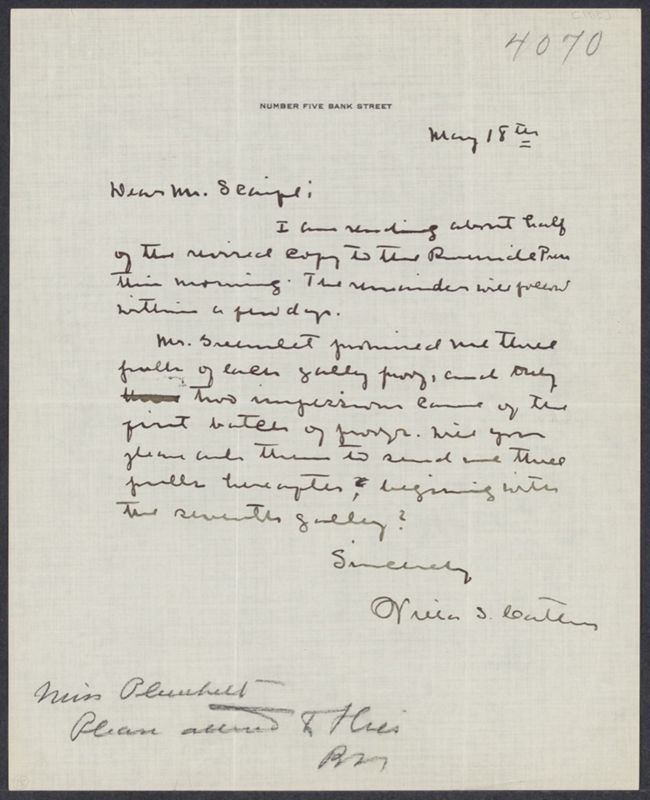 4070
NUMBER FIVE BANK STREET
May 18th
Dear Mr. Scaife;
I am sending about half
of the revised copy to the Riverside Press
this morning. The remainder will follow
within a few days.
Mr. Greenslet promised me three
pulls of each galley proof, and only
two impressions came of the
first batch of proofs. Will you
please ask them to send me three
pulls hereafter, beginning with
the seventh galley?
Sincerely
Willa S. Cather
Miss
Please attend to this